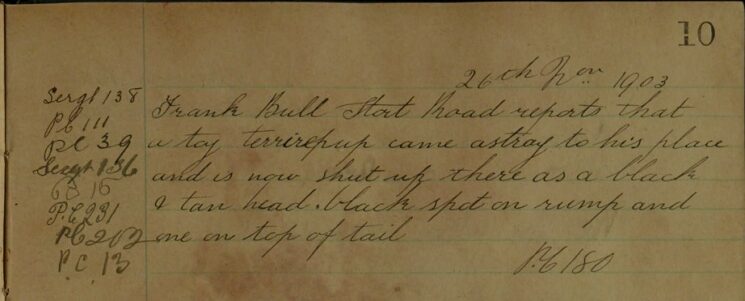 10
26th Nov 1903
Sergt 138
PC 111
PC 39
Sergt 136
PC 16
P.C 231
PC 202
P.C. 13
Frank Bull Stort Road reports that
a toy terrirepup came astray to his place
and is now shut up there as a black
& tan head. black spot on rump and
one on top of tail
P.C 180